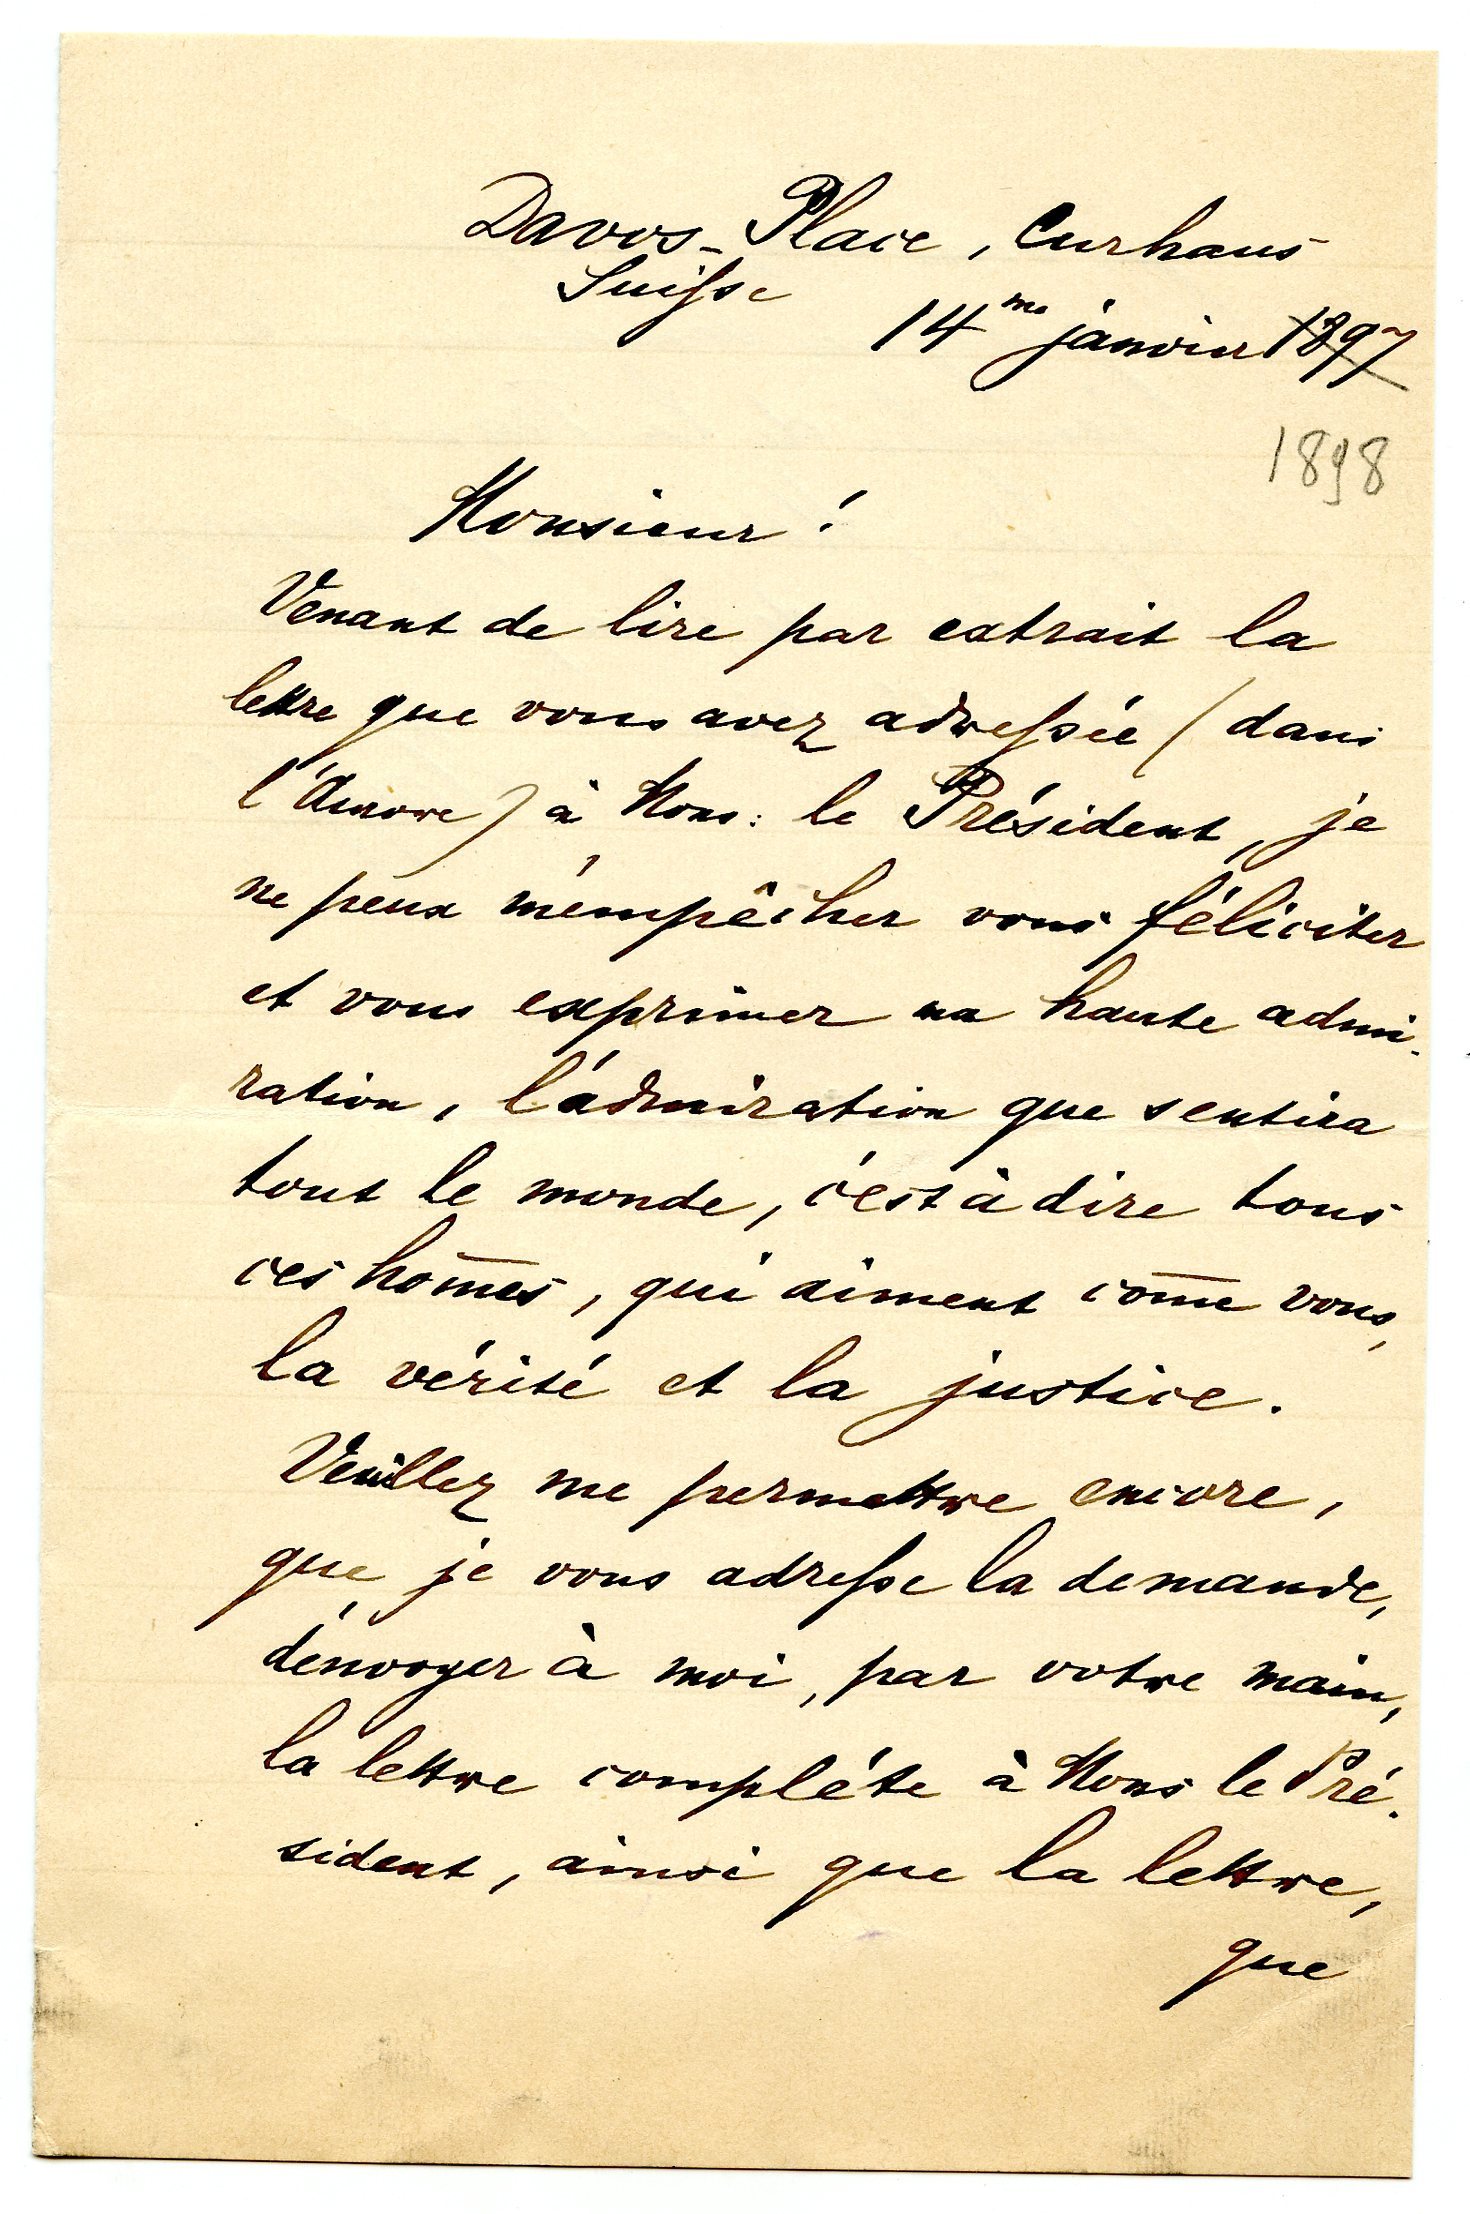 Davos-Place, Curhaus
Suisse
14me janvier 1897
1898
Monsieur!
Venant de lire par extrait la
lettre que vous avez adressée (dans
l'Aurore) à Mons: le Président, je
ne peux m'empêcher vous féliciter
et vous exprimer ma haute admi-
ration, l'admiration que sentira
tout le monde, c'est à dire tous
ces hom̄es, qui aiment com̄e vous,
la vérité et la justice.
Veuillez me permettre encore,
que je vous adresse la demande,
d'envoyer à moi, par votre main,
la lettre compléte à Mons le Pré-
sident, ainsi que la lettre,
que